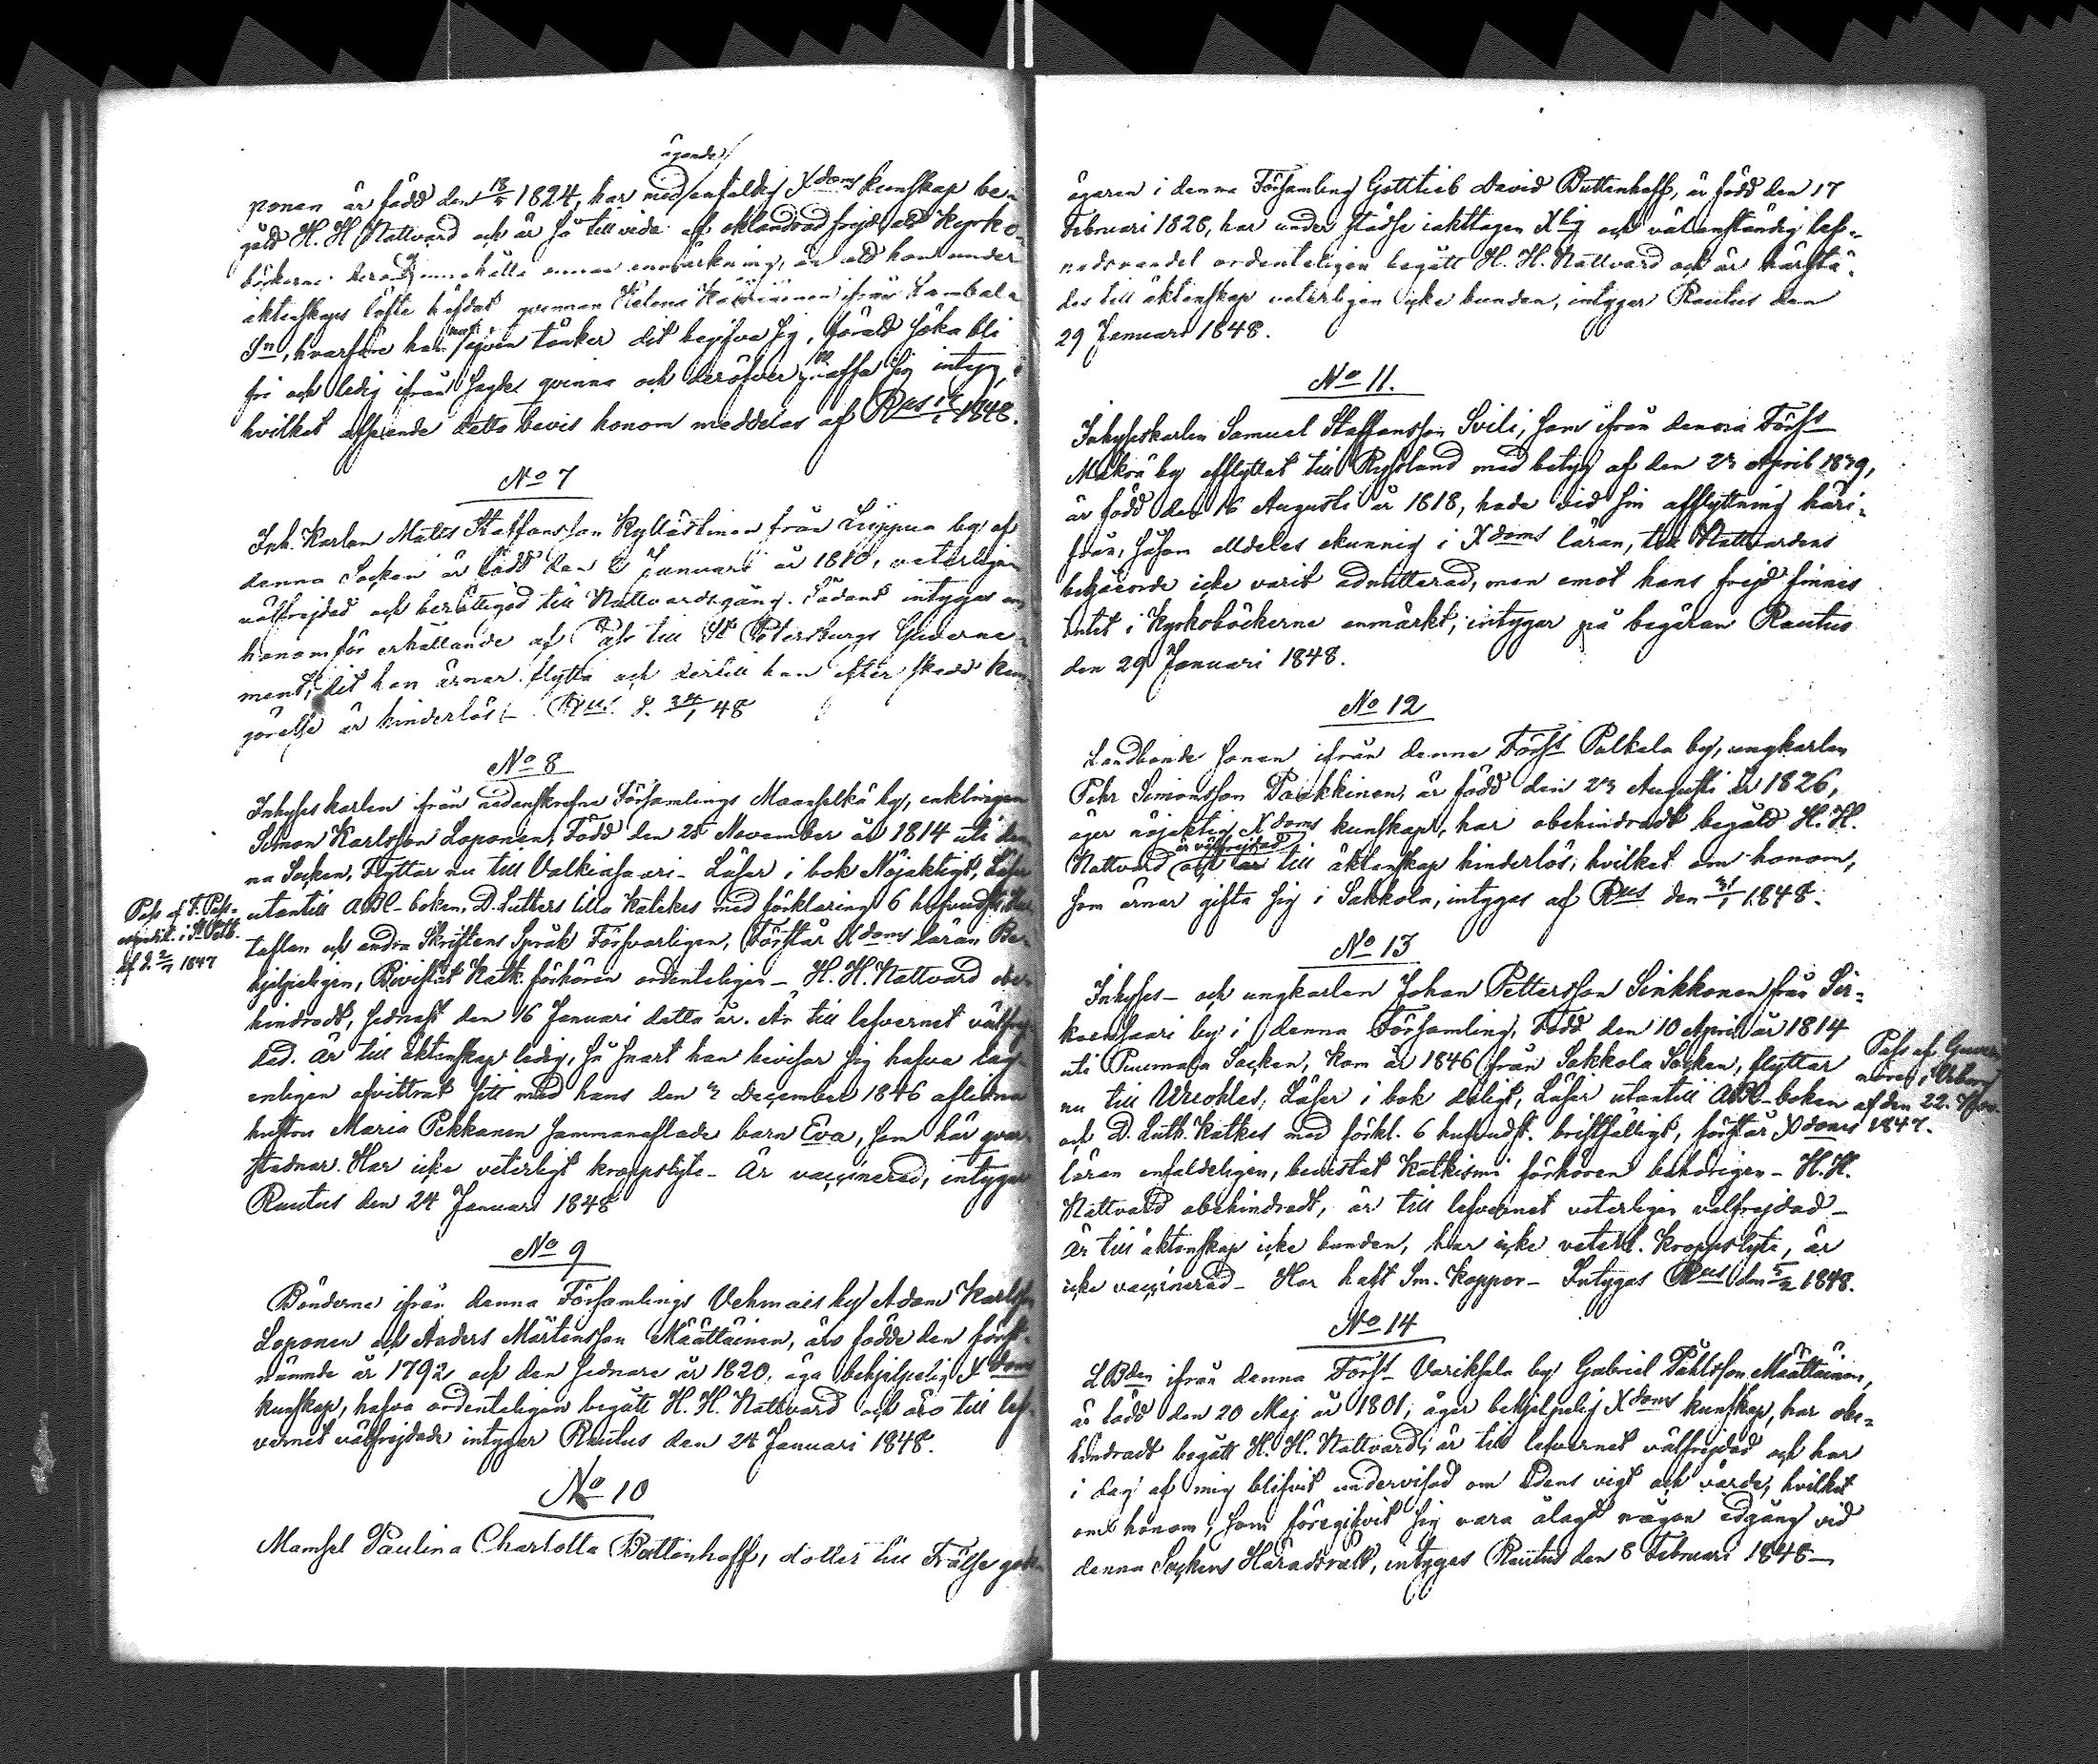 ägande
ponen är född den 13/2 1824, har med enfaldig Xdoms kunskap be-
gått H. H. Nattvard och är så till vida af oklandrad frejd, att kyrko-
böckerne derom innehålla annan anmärkning, än att han under
äktenskaps löfte häfdat qvinnan Helena från Lembala
Sn, hvarföre han tänker dit begifva sig, för att söka bli
fri och ledig ifrån sagde qvinna och deröfver skaffa sig intyg,
hvilket afseende detta bevis honom meddelas af Rus 1848.
No 7
Inh. Karlen Matts Staffansson Kyllästinen från Leippua by af
denna Socken är född den 2 Januari år 1810, veterligen
välfrejdad och berättigad till Nattvardsgång. Sådant intygas om
honom för erhållande af Pass till St Petersburgs Guverne-
ment, dit han ärnar flytta och dertill han efter skedd kun-
görelse är hinderlös. Rus. d. 24/1 48
No 8
Inhyseskarlen ifrån nedanskrefne Församlings Maanselkä by, enklingen
Simon Karlsson Loponen, Född den 28 November år 1814 uti den-
na Socken, Flyttar nu till Valkiasaari - Läser i bok Nöjaktigt, Läser
utantill ABC-boken, D. Luthers lilla Katekes med förklaring 6 hufvudst.
taflan och andra Skriftens Språk Försvarligen, Förstår Xdoms läran Be-
hjelpeligen, Bevistat Katk. förhören ordenteligen - H. H. Nattvard obe-
hindradt, sednast den 16 Januari detta år. Är till lefvernet välfrej-
dad. Är till äktenskap ledig, så snart han bevisar sig hafva lag-
enligen afvittrat sitt med hans den 3 December 1846 aflidna
hustru Maria Pekkanen sammanaflade barn Eva, som här qvar-
stadnar. Har icke veterligt kroppslyte - Är vaccinerad, intygar
Rautus den 24 Januari 1848
Pass af F. Pass-
expedit. i St. Petb.
af d. 2/7 1847
No 9
Bönderne ifrån denna Församlings Vehmais by Adam Karlsson
Loponen och Anders Mårtensson Määttäinen, äro födde den först-
nämnde år 1792 och den sednare år 1820, äga behjelpelig Xdoms
kunskap, hafva ordenteligen begått H. H. Nattvard och äro till lef-
vernet välfrejdade intygar Rautus den 24 Januari 1848.
No 10
Mamsel Paulina Charlotta Buttenhoff, dotter till Frälse gods
ägaren i denna Församling Gottlieb David Buttenhoff, är född den 17
Februari 1826, har under städse iakttagen Xlig och väl anständig lef-
nadsvandel ordenteligen begått H. H. Nattvard och är härstä-
des till äktenskap veterligen icke bunden, intygar Rautus den
29 Januari 1848.
No 11.
Inhyseskarlen Samuel Staffansson Svili, som ifrån denna Förs:
Makrä by afflyttat till Ryssland med betyg af den 23 April 1839,
är född den 16 Augusti år 1818, hade vid sin afflyttning häri-
från, såsom alldeles okunnig i Xdoms läran, till Nattvardens
begående icke varit admitterad, men emot hans frejd finnes
intet i Kyrkoböckerne anmärkt, intygar på begäran Rautus
den 29 Januari 1848.
No 12
Landbonde sonen ifrån denna Förs: Palkela by, ungkarlen
Pehr Simonsson Paukkinen, är född den 23 Augusti år 1826,
äger nöjaktig Xdoms kunskap, har obehindradt begått H. H.
är välfrejdad
Nattvard och är till äktenskap hinderlös, hvilket om honom,
som ärnar gifta sig i Sakkola, intygas af Rus den 31/1 1848.
No 13
Inhyses- och ungkarlen Johan Pettersson Sinkkonen från Sir-
kiensaari by i denna Församling, Född den 10 April år 1814
uti Puumala Socken, kom år 1846 från Sakkola Socken, flyttar
nu till Wuoles, Läser i bok dåligt, Läser utantill ABC-boken
och D. Luth. Katkes med förkl. 6 hufvudst. bristfälligt, förstår Xdoms
läran enfaldeligen, bevistat Katkismi förhören behörigen - H. H.
Nattvard obehindradt, är till lefvernet veterligen välfrejdad -
Är till äktenskap icke bunden, har icke veterl. kroppslyte, är
icke vaccinerad - Har haft Sm. Koppor - Intygas Rus den 5/2 1848.
Pass af Guver-
nören i Viborg
af den 22. Nov.
1847.
No 14
LBden ifrån denna Förs: Variksela by Gabriel Påhlsson Määttäinen,
är född den 20 Maj år 1801, äger behjelpelig Xdoms kunskap, har obe-
hindradt begått H. H. Nattvard, är till lefvernet välfrejdad och har
i dag af mig blifvit undervisad om Edens vigt och värde, hvilket
om honom, som föregifvit sig vara ålagd någon edgång vid
denna Sockens Häradsrätt, intygas Rautus den 8 Februari 1848 -